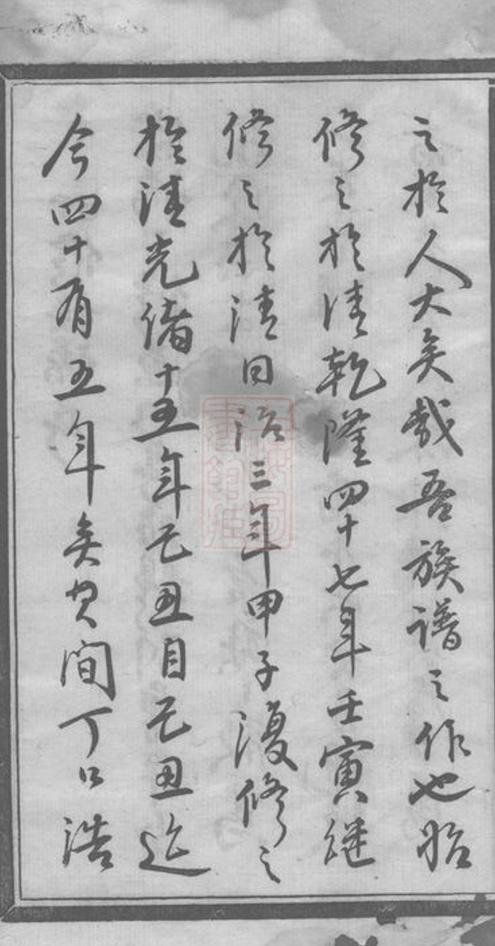 之於人大矣哉吾族譜之作也始
修之於清乾隆四十七年壬寅継
修之於清同治三年甲子復修之
於清光緒十五年己丑自己丑迄
今四十有五年矣其間丁口浩